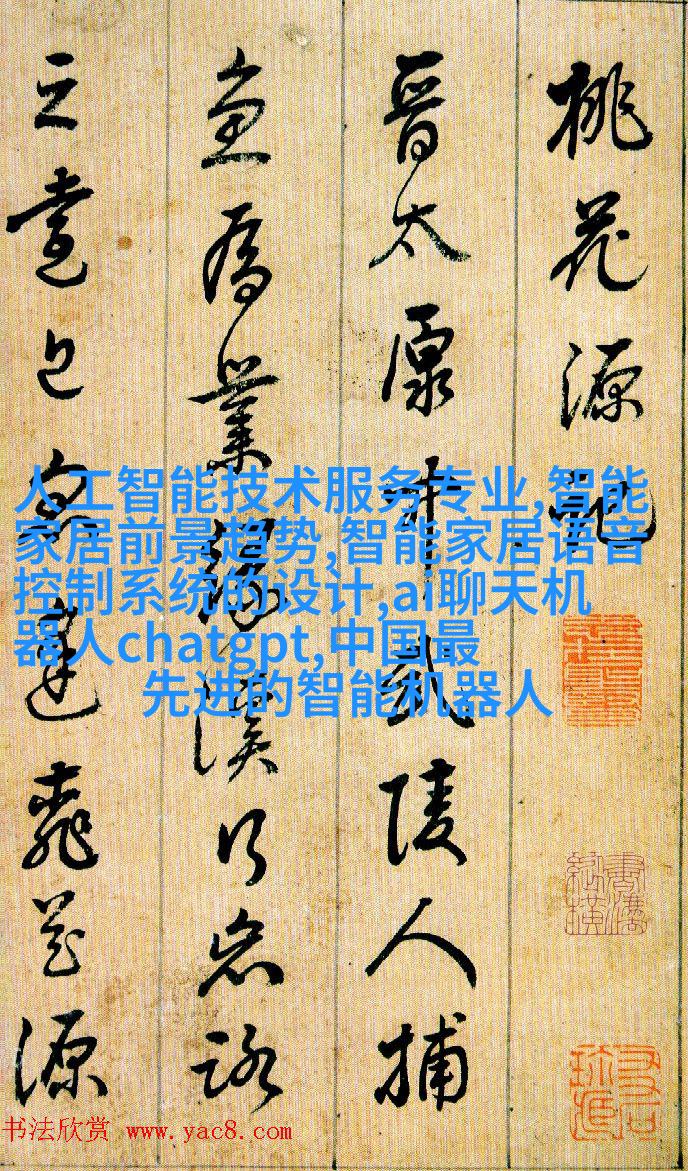 桃花源記
晉太原中武陵人捕
魚為業緣溪行忘路
之
源
人工智能技术服务专业,智能
家居前景趋势,智能家居语音
控制系统的设计,ai聊天机
器人chatgpt,中国最
先进的智能机器人
书法欣赏 www.yac8.com